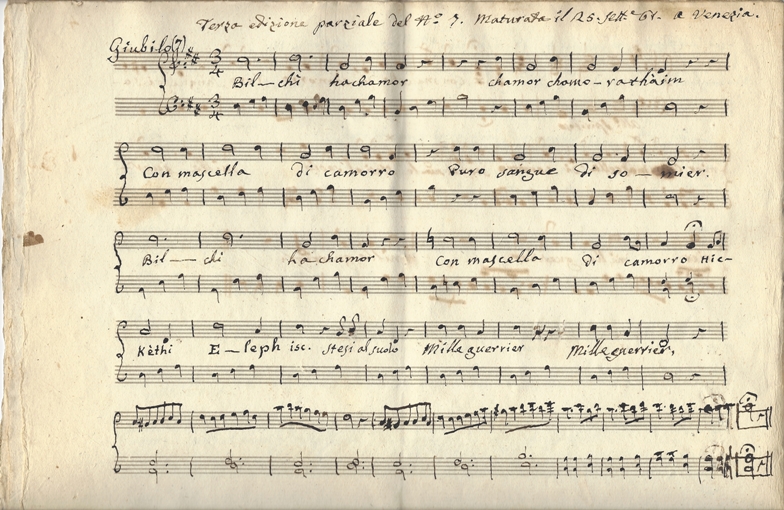 Terza edizione parziale del Nº 7. Maturata il 25. Sett.e 61. a Venezia.
Giubilo(?)
Bil—chi hachamor chamor chamo-rathàim
Con mascella di camorro Puro sangue di so—mier.
Bil—chi ha chamor Con mascella di camorro Hic-
Kèthi E—leph isc. stesi al suolo Mille guerrier Mille guerrier,